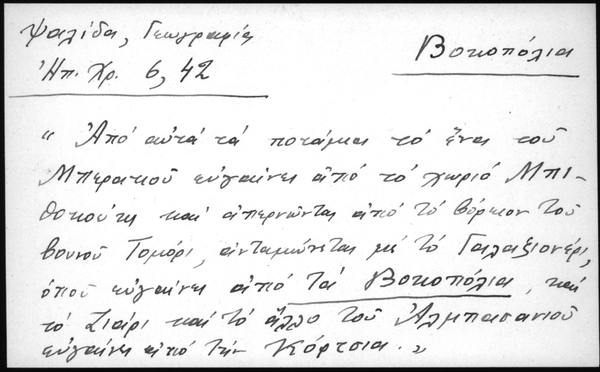 Ψαλίδα, Γεωγραφία
Ἠπ. Χρ. 6, 42
Βοκοπόλια
“ Ἀπό αὐτά τά ποτάμια τό ἕνα τοῦ
Μπερατιοῦ εὐγαίνει ἀπό τό χωριό Μπι-
θοκούτι καί ἀπερνῶντας ἀπό τό βόρειον τοῦ
βουνοῦ Τομόρι, ἀνταμώνεται μέ τό Γαλαξιονέρι,
ὁποῦ εὐγαίνει ἀπό τά Βοκοπόλια, καί
τό ἄλλο τοῦ Ἀλμπασανιοῦ
εὐγαίνει ἀπό τήν Κόρτσια. „